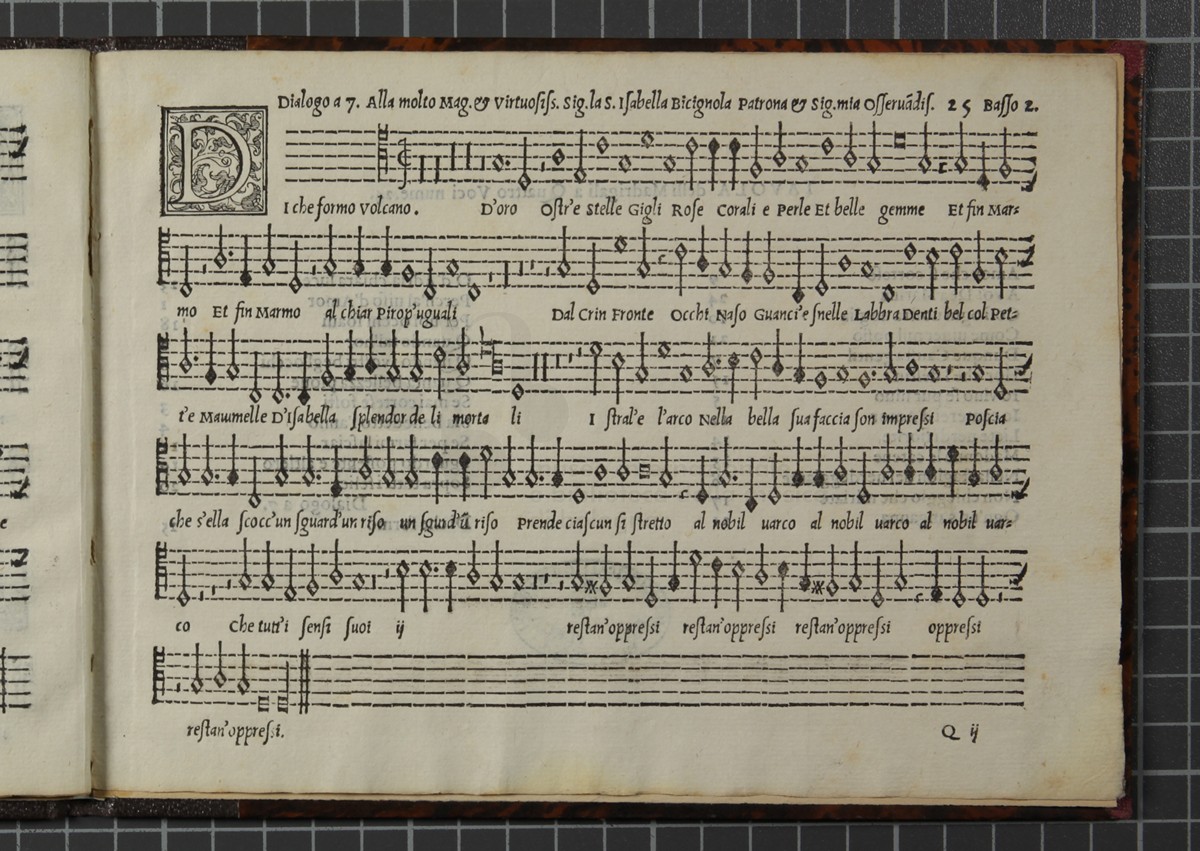 Dialogo a 7. Alla molto Mag. & Virtuosiſs. Sig. la S. Iſabella Bicignola Patrona & Sig. mia Oſſeruãdiſ. 25 Baſſo 2.
DI che formo Volcano. D'oro Oſtr'e Stelle Gigli Roſe Corali e Perle Et belle gemme Et fin Mar=
mo Et fin Marmo al chiar Pirop'uguali Dal Crin Fronte Occhi Naſo Guanci'e ſnelle Labbra Denti bel col Pet=
t'e Mammelle D'Iſabella ſplendor de li morta li I ſtral'e l'arco Nella bella ſua faccia ſon impreſſi Poſcia
che s'ella ſcocc'un ſguard'un riſo un ſguard'ũ riſo Prende ciaſcun ſi ſtretto al nobil uarco al nobil uarco al nobil uar=
co Che tutt'i ſenſi ſuoi ij reſtan'oppreſſi reſtan'oppreſſi reſtan'oppreſſi oppreſſi
reſtan'oppreſſi.
Q ij